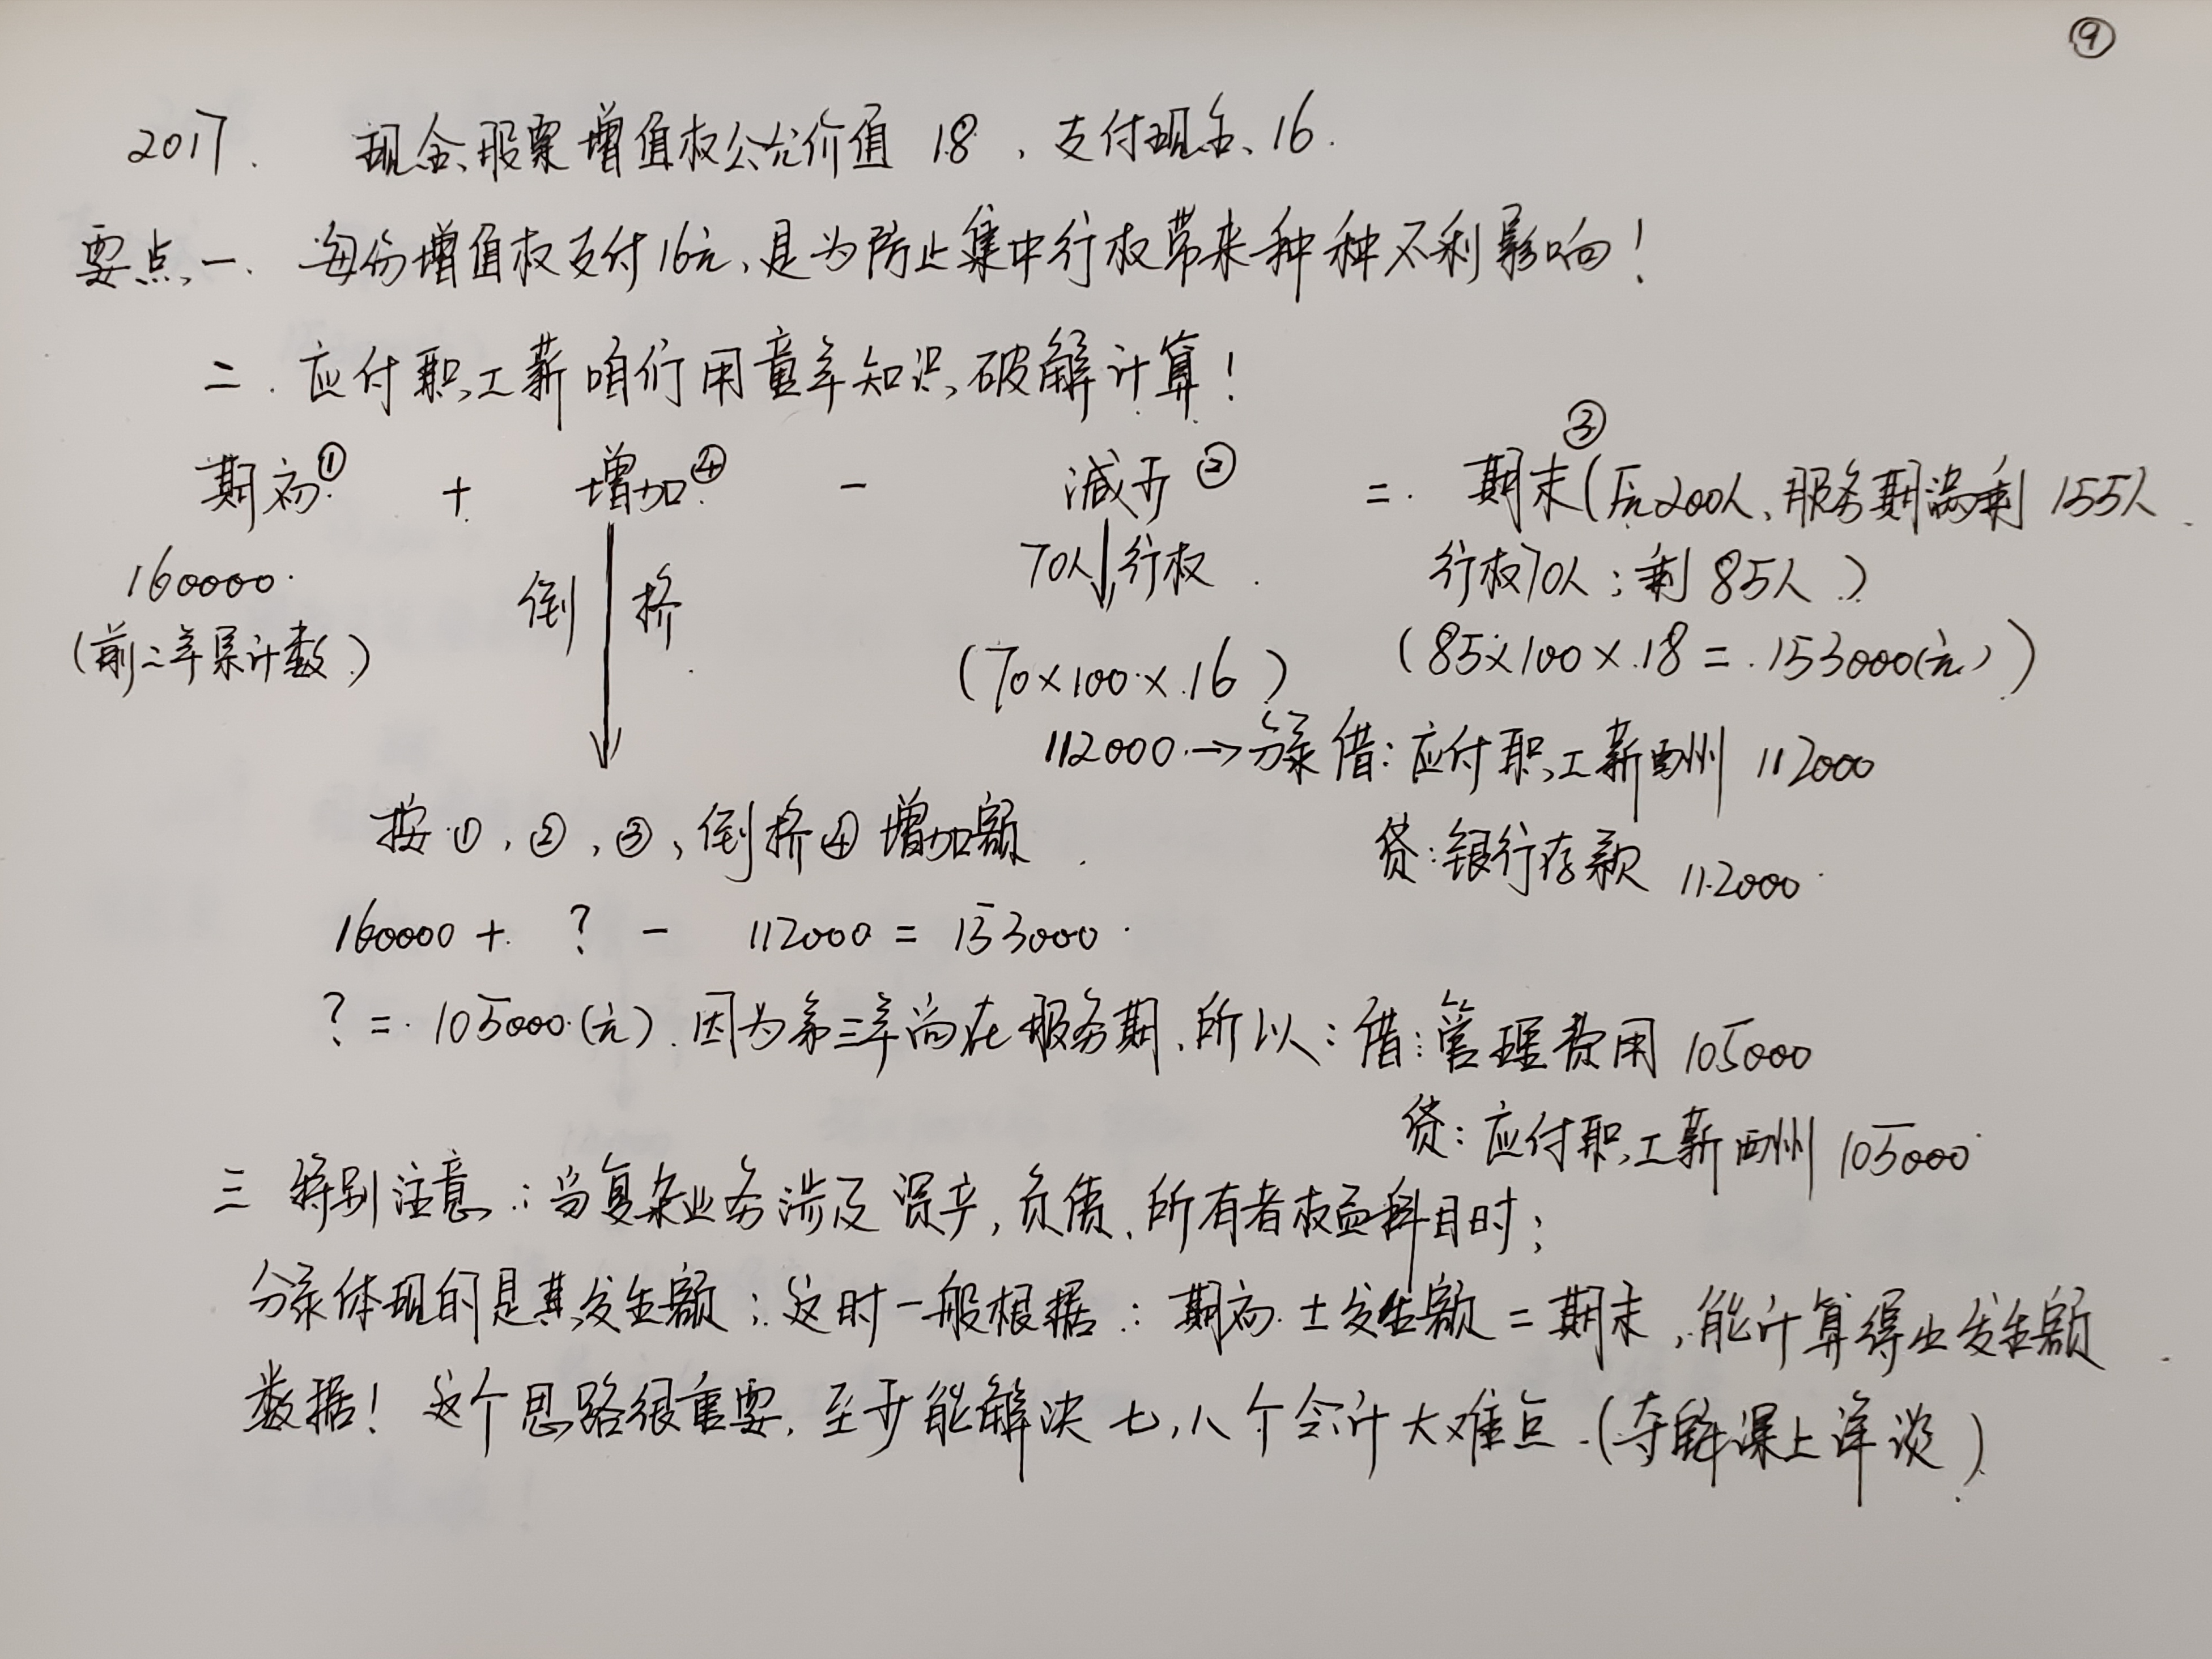 ⑨
2017. 现金股票增值权公允价值 18, 支付现金 16.
要点一. 每份增值权支付16元, 是为防止集中行权带来种种不利影响!
二. 应付职工薪咱们用童年知识破解计算!
期初① + 增加④ - 减少② = 期末③(原200人, 服务期满剩 155人
160000 倒挤 70人行权 行权70人; 剩 85人)
(前二年累计数) (70×100×16) (85×100×18=153000(元))
112000→分录 借: 应付职工薪酬 112000
按①, ②, ③, 倒挤④ 增加额 贷: 银行存款 112000
160000 + ? - 112000 = 153000
? = 105000(元). 因为第三年尚在服务期, 所以: 借: 管理费用 105000
贷: 应付职工薪酬 105000
三 特别注意: 当复杂业务涉及资产, 负债, 所有者权益科目时;
分录体现的是其发生额; 这时一般根据: 期初±发生额=期末, 能计算得出发生额
数据! 这个思路很重要, 至少能解决七, 八个会计大难点. (夺降课上详谈)